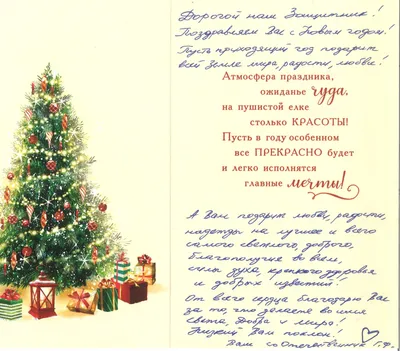 Дорогой наш Защитник!
Поздравляем Вас с Новым годом!
Пусть приходящий год подарит
всей Земле мира, радости, любви!
Атмосфера праздника,
ожиданье чуда.
на пушистой елке
столько КРАСОТЫ!
Пусть в году особенном
все ПРЕКРАСНО будет
и легко исполнятся
главные мечты!
А Вам подарит любви, радости,
надежды на лучшее и всего
самого светлого, доброго,
благополучия во всём,
силы духа, крепкого здоровья
и добрых известий!
От всего сердца благодарю Вас
за то, что делаете во имя
света, Добра и мира!
Низкий Вам поклон!
Вам соотечественник